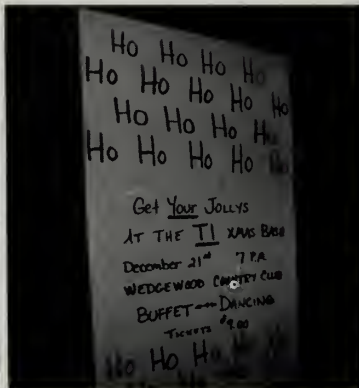 Ho Ho Ho Ho
Ho Ho Ho Ho Ho
Ho Ho Ho Ho
Ho Ho Ho Ho Ho
Get Your JOLLYS
AT THE TI XMAS BASH
December 21st 7 P.M.
WEDGEWOOD COUNTRY CLUB
BUFFET DANCING
TICKETS $9.00
Ho Ho Ho